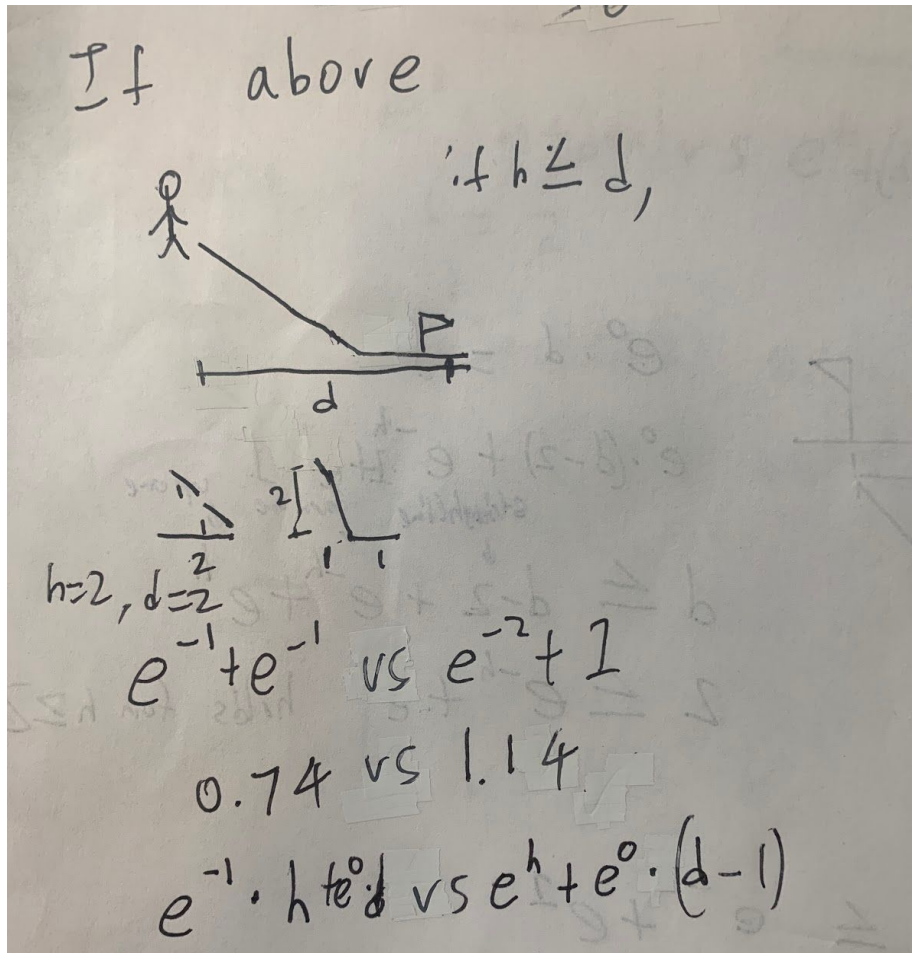 If above
if h ≤ d,
P
d
1
1
2
2
1 1
h=2, d=2
e^-1 + e^-1 vs e^-2 + 1
0.74 vs 1.14
e^-1 · h + e^0 · d vs e^h + e^0 · (d-1)